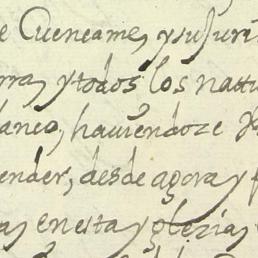 e Cuencame, y su Juri
rra, y todos los nattu
lanco, haviendoze
ender, desde agora y p
as en esta yglezia,